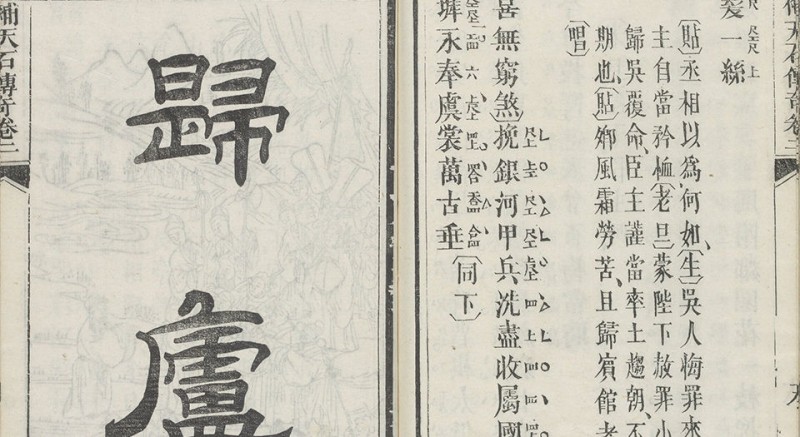 補天石傳奇卷二
髮一絲
〔貼〕丞相以為何如、〔生〕吳人悔罪來
主自當矜恤〔老旦〕蒙陛下赦罪小
歸吳覆命、臣主謹當率土趨朝、不
期也、〔貼〕卿風霜勞苦、且歸賓館、者
〔唱〕
喜無窮煞〕挽銀河甲兵洗盡收屬國
墀永奉虞裳萬古垂〔同下〕
歸
廬
補天石傳奇卷二